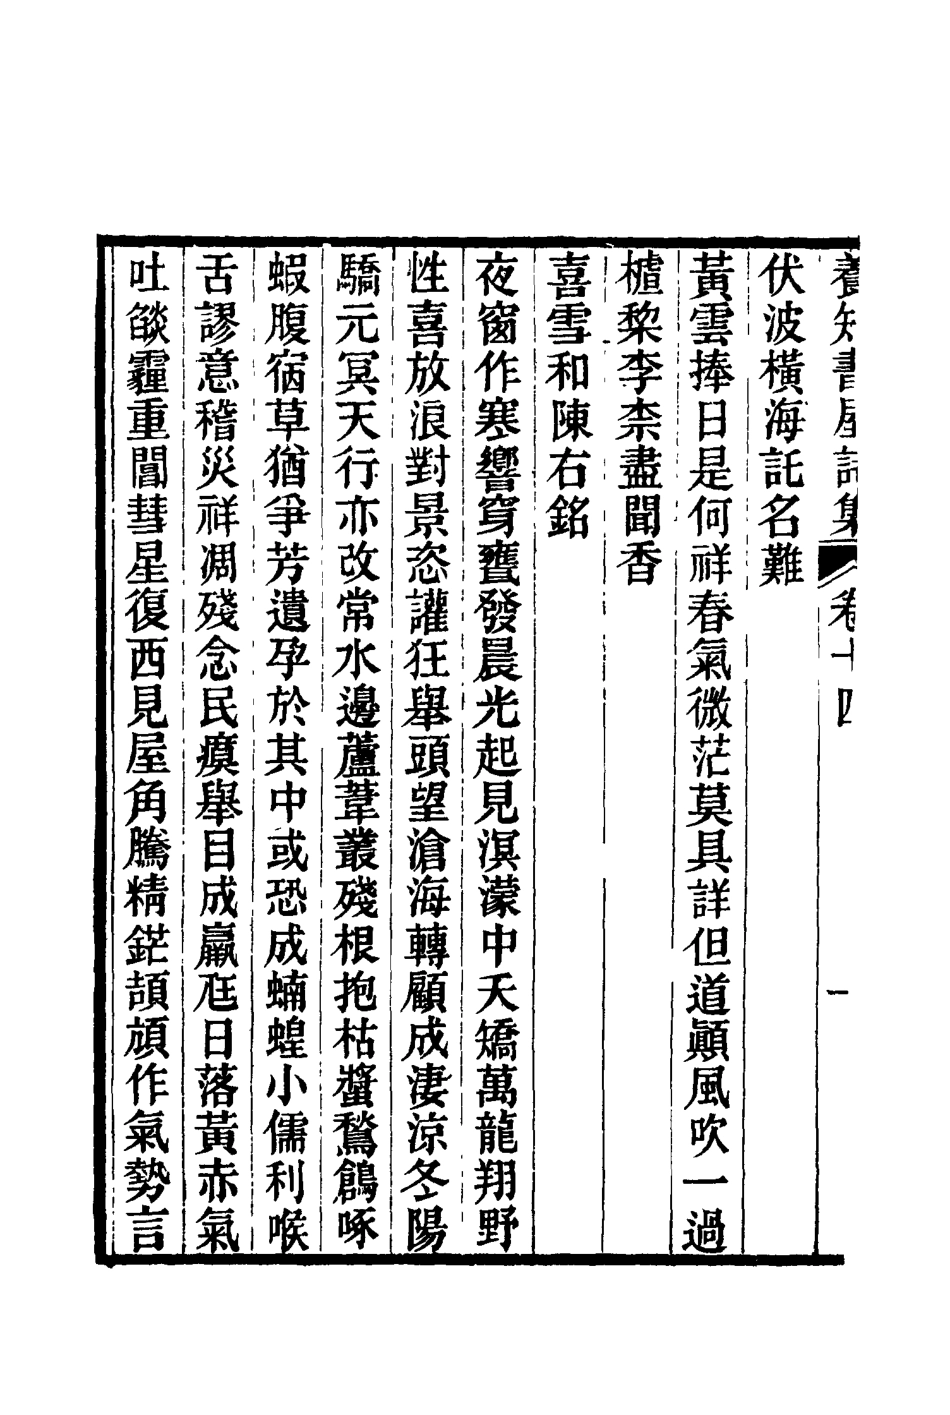 養知書屋詩集 卷十四 一
伏波橫海託名難
黃雲捧日是何祥春氣微茫莫具詳但道顚風吹一過
樝棃李柰盡聞香
喜雪和陳右銘
夜窗作寒響穿甕發晨光起見溟濛中夭矯萬龍翔野
性喜放浪對景恣讙狂舉頭望滄海轉顧成淒涼冬陽
驕元冥天行亦改常水邊蘆葦叢殘根抱枯螿鶖鶬啄
蝦腹宿草猶爭芳遺孕於其中或恐成蝻蝗小儒利喉
舌謬意稽災祥凋殘念民瘼舉目成羸尪日落黃赤氣
吐燄霾重閶彗星復西見屋角騰精鋩頡頏作氣勢言